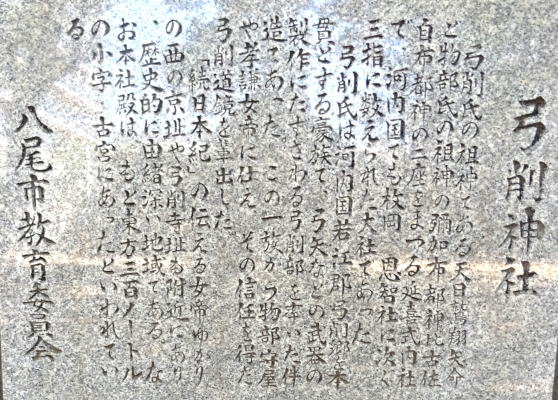 弓削神社
弓削氏の祖神である天日鷲翔矢命
と物部氏の祖神の彌加布都神比古佐
自布都神の二座をまつる延喜式内社
で、河内国でも枚岡、恩智社に次ぐ
三指に数えられた大社であった。
弓削氏は河内国若江郡弓削郷を本
貫とする豪族で、弓矢などの武器の
製作にたずさわる弓削部を率いた伴
造であった。この一族から物部守屋
や孝謙女帝に仕え、その信任を得た
弓削道鏡を輩出した。
「続日本紀」の伝える女帝ゆかり
の西の京址や弓削寺址も附近にあり
、歴史的に由緒深い地域である。な
お本社殿は、もと東方三百メートル
の小字、古宮にあったといわれてい
る
八尾市教育委員会